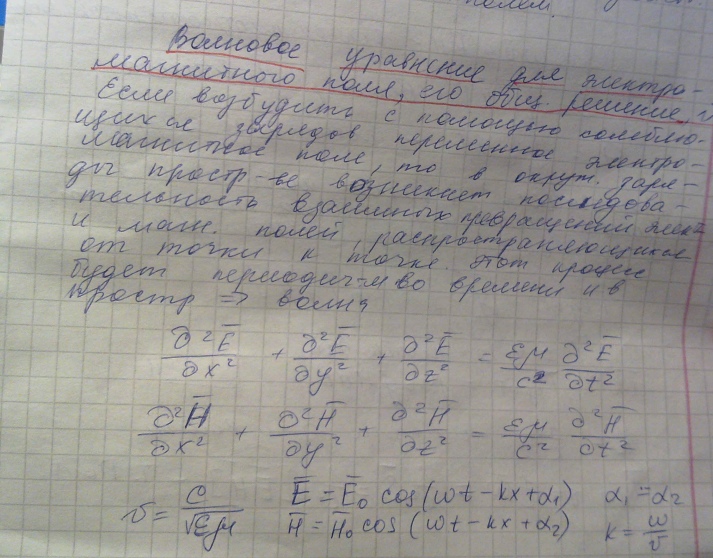 полем.
Волновое уравнение для электро-
магнитного поля, его общ. решение,
Если возбудить с помощью колеблю-
щихся зарядов переменное электро-
магнитное поле, то в окруж. заря-
ды простр-ве возникнет последова-
тельность взаимных превращений элект
и магн. полей, распространяющихся
от точки к точке. Этот процесс
будет периодич-м во времени и в
простр ⇒ волна
∂²E̅/∂x² + ∂²E̅/∂y² + ∂²E̅/∂z² = εμ/c² ∂²E̅/∂t²
∂²H̅/∂x² + ∂²H̅/∂y² + ∂²H̅/∂z² = εμ/c² ∂²H̅/∂t²
v = c/√εμ E̅ = E̅₀ cos(ωt − kx + α₁) α₁ = α₂
H̅ = H̅₀ cos(ωt − kx + α₂) k = ω/v